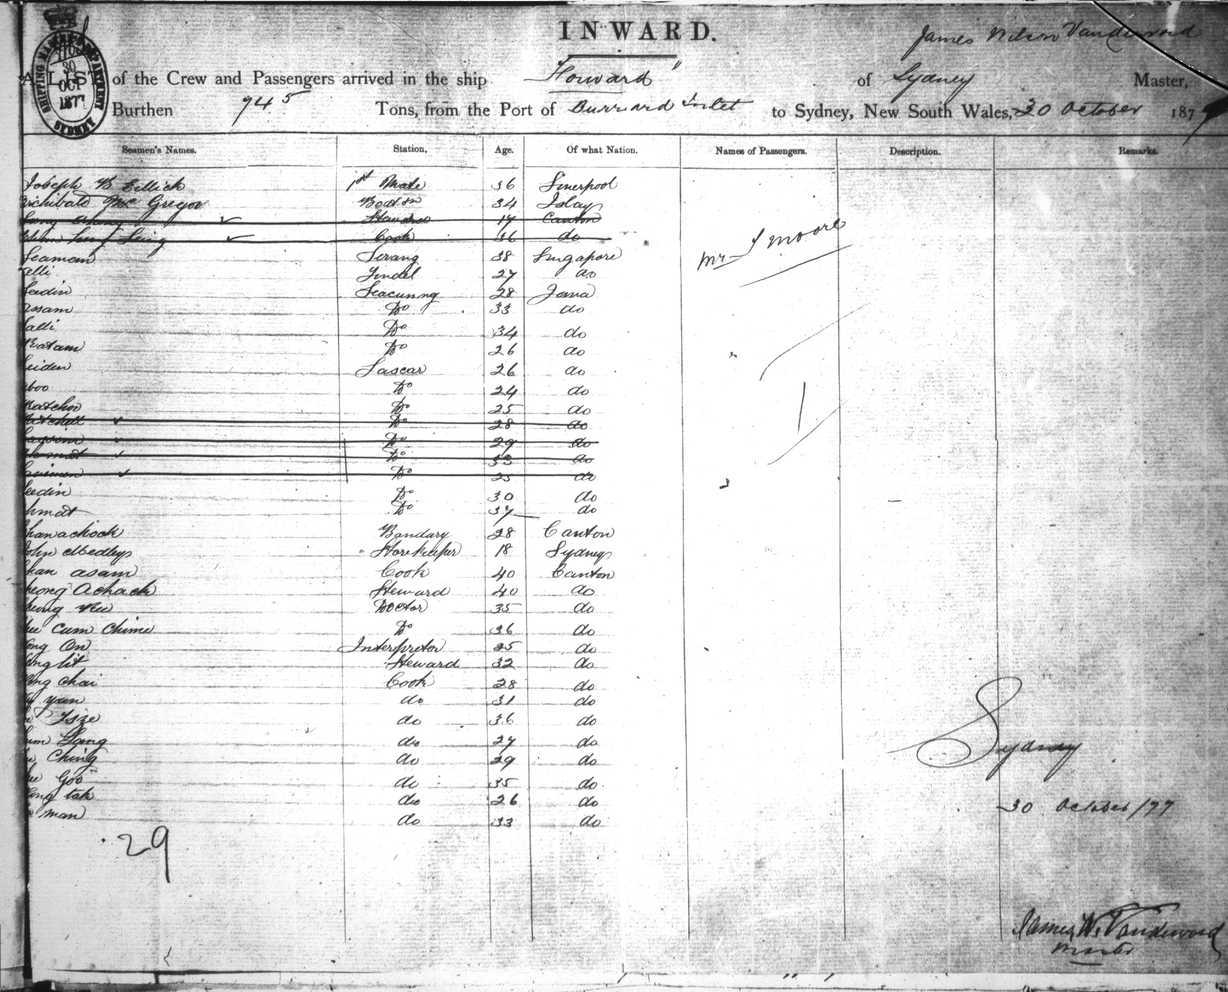 INWARD.
James Wilson Vanderword
A LIST of the Crew and Passengers arrived in the ship "Howard" of Sydney Master,
Burthen 945 Tons, from the Port of Burrard Inlet to Sydney, New South Wales, 30 October 187
SHIPPING MASTER'S DEPARTMENT SYDNEY 30 OCT 1877
Seamen's Names. Station, Age. Of what Nation. Names of Passengers. Description. Remarks.
Joseph B 1st Mate 36 Liverpool
Archibald McGregor Bodsn 34 Islay
Steward 17 Canton
Cook 36 do
Seaman Serang 38 Singapore
alli Tindal 27 do
Mr J Moore
Seacunny 28 Java
assam Do 33 do
alli Do 34 do
Batam Do 26 do
eiden Lascar 26 do
boo Do 24 do
Do 25 do
Do 28 do
Do 29 do
Do 33 do
Do 25 do
eedin Do 30 do
hmat Do 37 do
hanachock Bandary 28 Canton
John Medleys Storekeeper 18 Sydney
asam Cook 40 Canton
heong Achack Steward 40 do
Doctor 35 do
Cum Chime Do 36 do
ong On Interpretor 25 do
ing lit Steward 32 do
ng Chai Cook 28 do
yun do 31 do
Tsze do 36 do
do 27 do
Ching do 29 do
Goo do 35 do
ng tak do 26 do
man do 33 do
29
Sydney
30 October/77
James W. Vanderword
Master